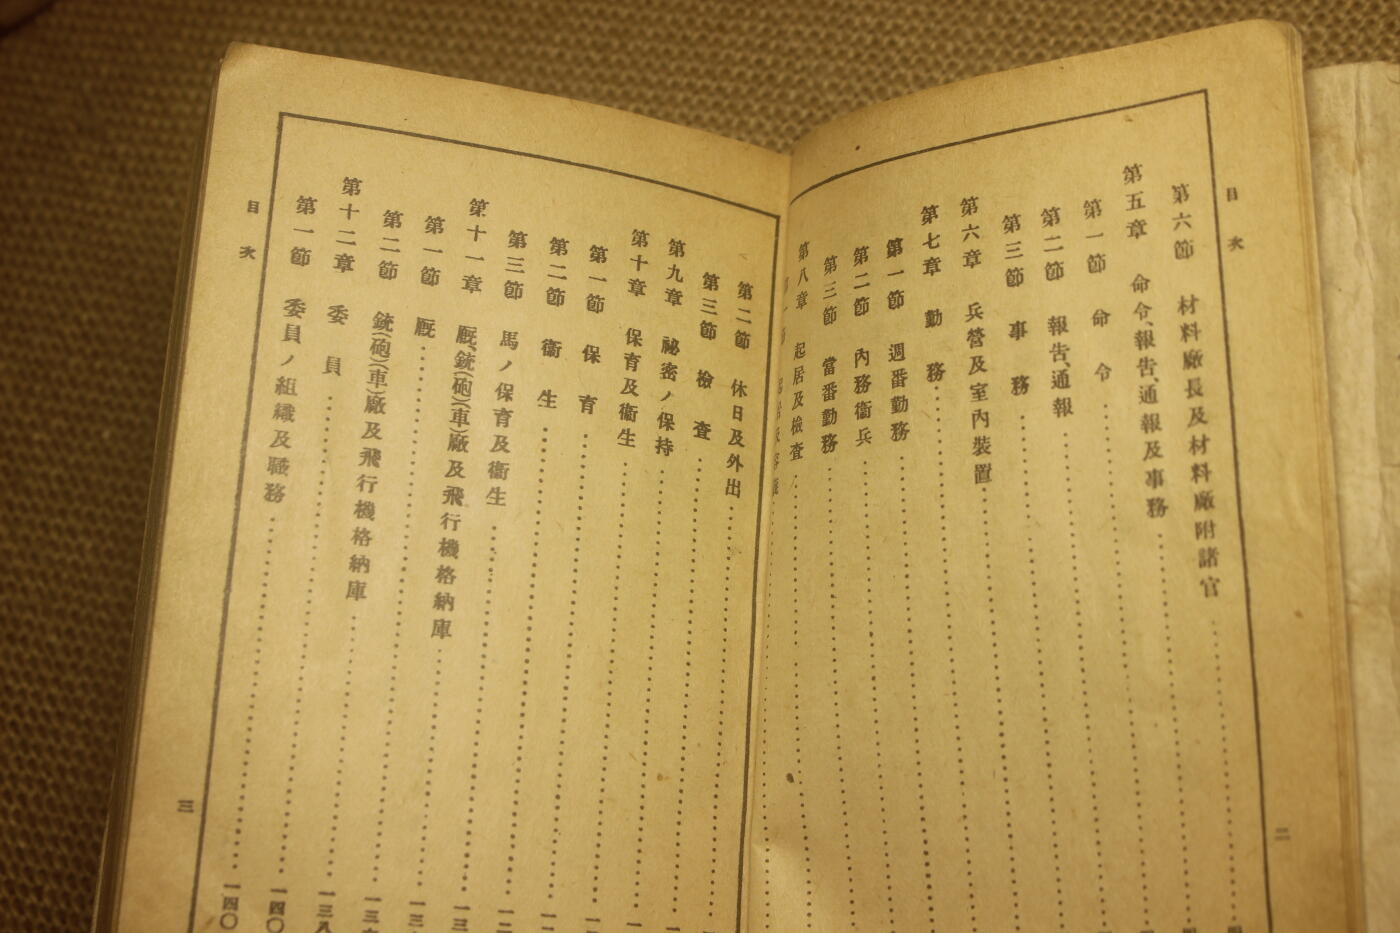 目次
第六節 材料廠長及材料廠附諸官
第五章 命令、報告、通報及事務
第一節 命令
第二節 報告、通報
第三節 事務
第六章 兵營及室內裝置
第七章 勤務
第一節 週番勤務
第二節 內務衞兵
第三節 當番勤務
第八章 起居及檢查
二
第二節 休日及外出
第三節 檢查
第九章 祕密ノ保持
第十章 保育及衞生
第一節 保育
第二節 衞生
第三節 馬ノ保育及衞生
第十一章 厩、銃(砲)(車)廠及飛行機格納庫
第一節 厩
第二節 銃(砲)(車)廠及飛行機格納庫
第十二章 委員 一三八
第一節 委員ノ組織及職務 一四〇
一四〇
目次
三